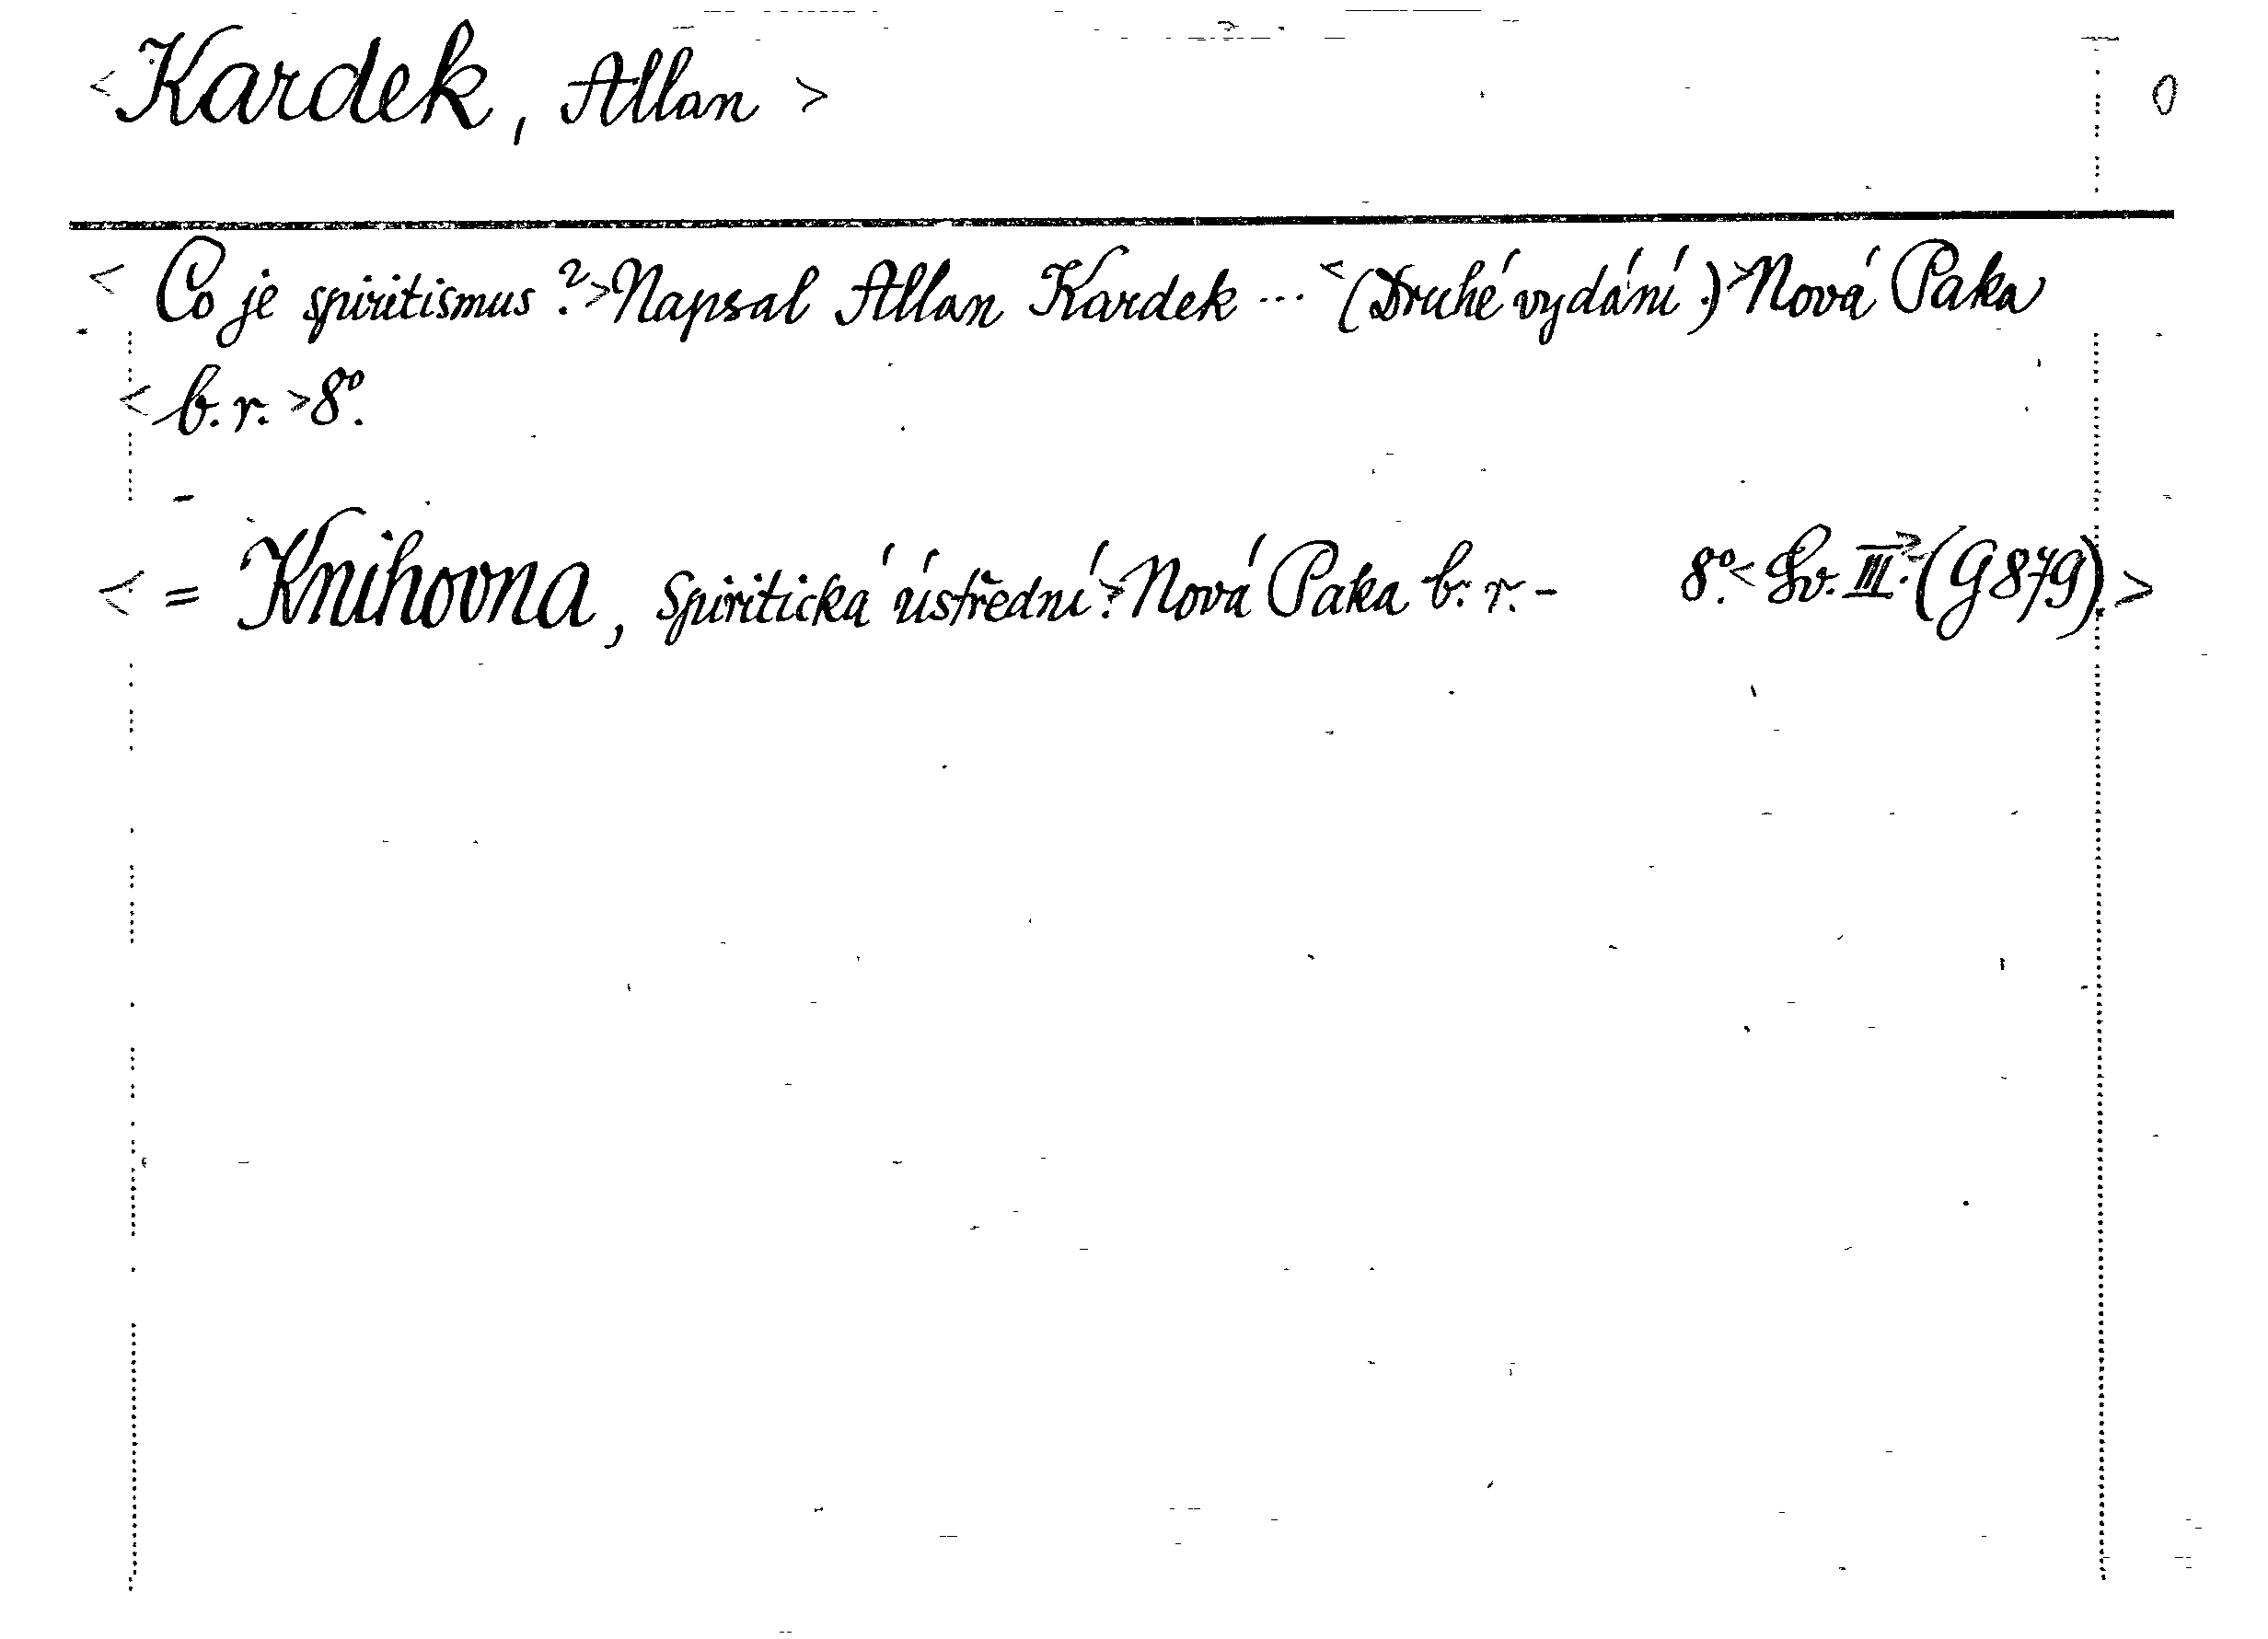 <Kardek, Allan> 0
<Co je spiritismus?>Napsal Allan Kardek ... <(Druhé vydání.)>Nová Paka
<b.r.>8°.
<= Knihovna, spiritická ústřední.>Nová Paka b.r.- 8°.<Sv. III.>(G 879).>